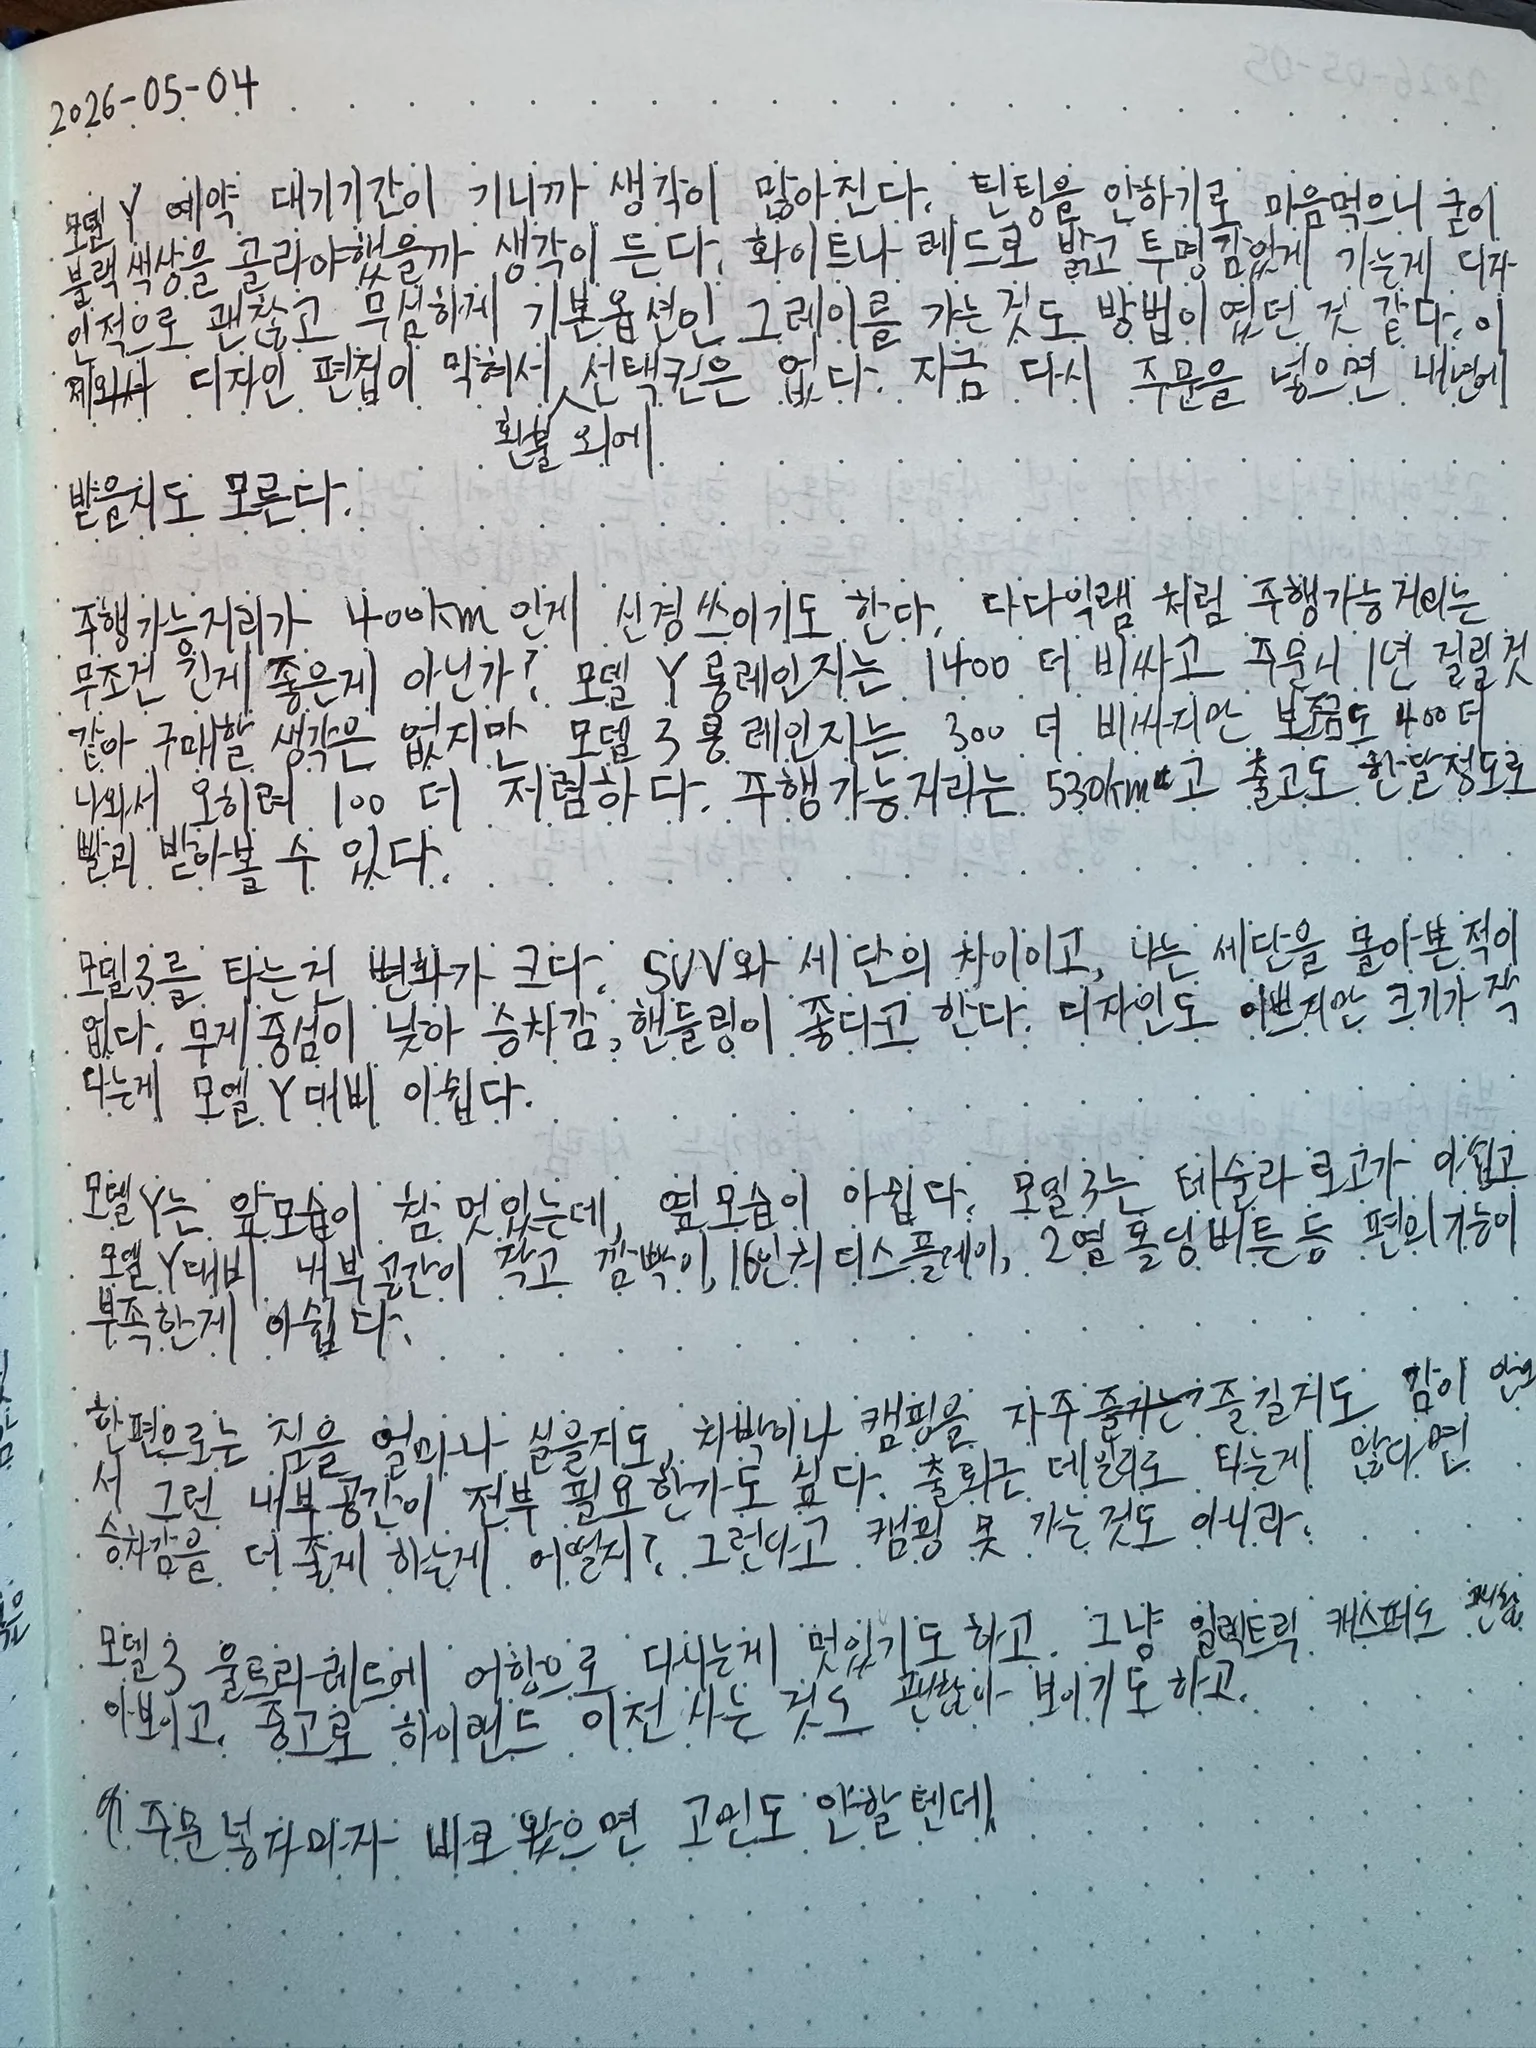 2026-05-04
모델 Y 예약 대기기간이 기니까 생각이 많아진다. 틴팅을 안하기로 마음먹으니 굳이
블랙 색상을 골라야했을까 생각이 든다. 화이트나 레드로 밝고 투명감있게 가는게 디자
인적으로 괜찮고 무심하게 기본옵션인 그레이를 가는 것도 방법이였던 것 같다. 이
제와서 디자인 편집이 막혀서 선택권은 없다. 지금 다시 주문을 넣으면 내년에
환불 외에
받을지도 모른다.
주행가능거리가 400km 인게 신경쓰이기도 한다. 다다익램 처럼 주행가능거리는
무조건 긴게 좋은게 아닌가? 모델 Y 롱레인지는 1400 더 비싸고 주문시 1년 걸릴것
같아 구매할 생각은 없지만 모델 3 롱레인지는 300 더 비싸지만 보조금도 400 더
나와서 오히려 100 더 저렴하다. 주행가능거리는 530km 고 출고도 한달정도로
빨리 받아볼 수 있다.
모델3를 타는건 변화가 크다. SUV와 세단의 차이이고, 나는 세단을 몰아본적이
없다. 무게중심이 낮아 승차감, 핸들링이 좋다고 한다. 디자인도 이쁘지만 크기가 작
다는게 모델 Y대비 아쉽다.
모델Y는 앞모습이 참 멋있는데, 옆모습이 아쉽다. 모델3는 테슬라 로고가 아쉽고
모델 Y대비 내부공간이 작고 깜빡이, 16인치 디스플레이, 2열 폴딩버튼 등 편의기능이
부족한게 아쉽다.
한편으로는 짐을 얼마나 실을지도, 차박이나 캠핑을 자주 즐길지도 감이 안와
서 그런 내부공간이 전부 필요한가도 싶다. 출퇴근 데일리로 타는게 많다면
승차감을 더 좋게 하는게 어떨지? 그런다고 캠핑 못 가는것도 아니라.
모델3 울트라레드에 어항으로 다니는게 멋있기도하고. 그냥 일렉트릭 캐스퍼도 괜찮
아보이고. 중고로 하이랜드 이전 사는 것도 괜찮아 보이기도하고.
주문넣자마자 바로 왔으면 고민도 안할텐데